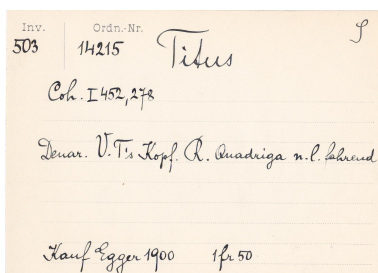 Inv. Ordn.-Nr. S
503 14215 Titus
Coh. I 452, 278
Denar. V. T's Kopf. R. Quadriga n. l. fahrend
Kauf Egger 1900 1 fr 50